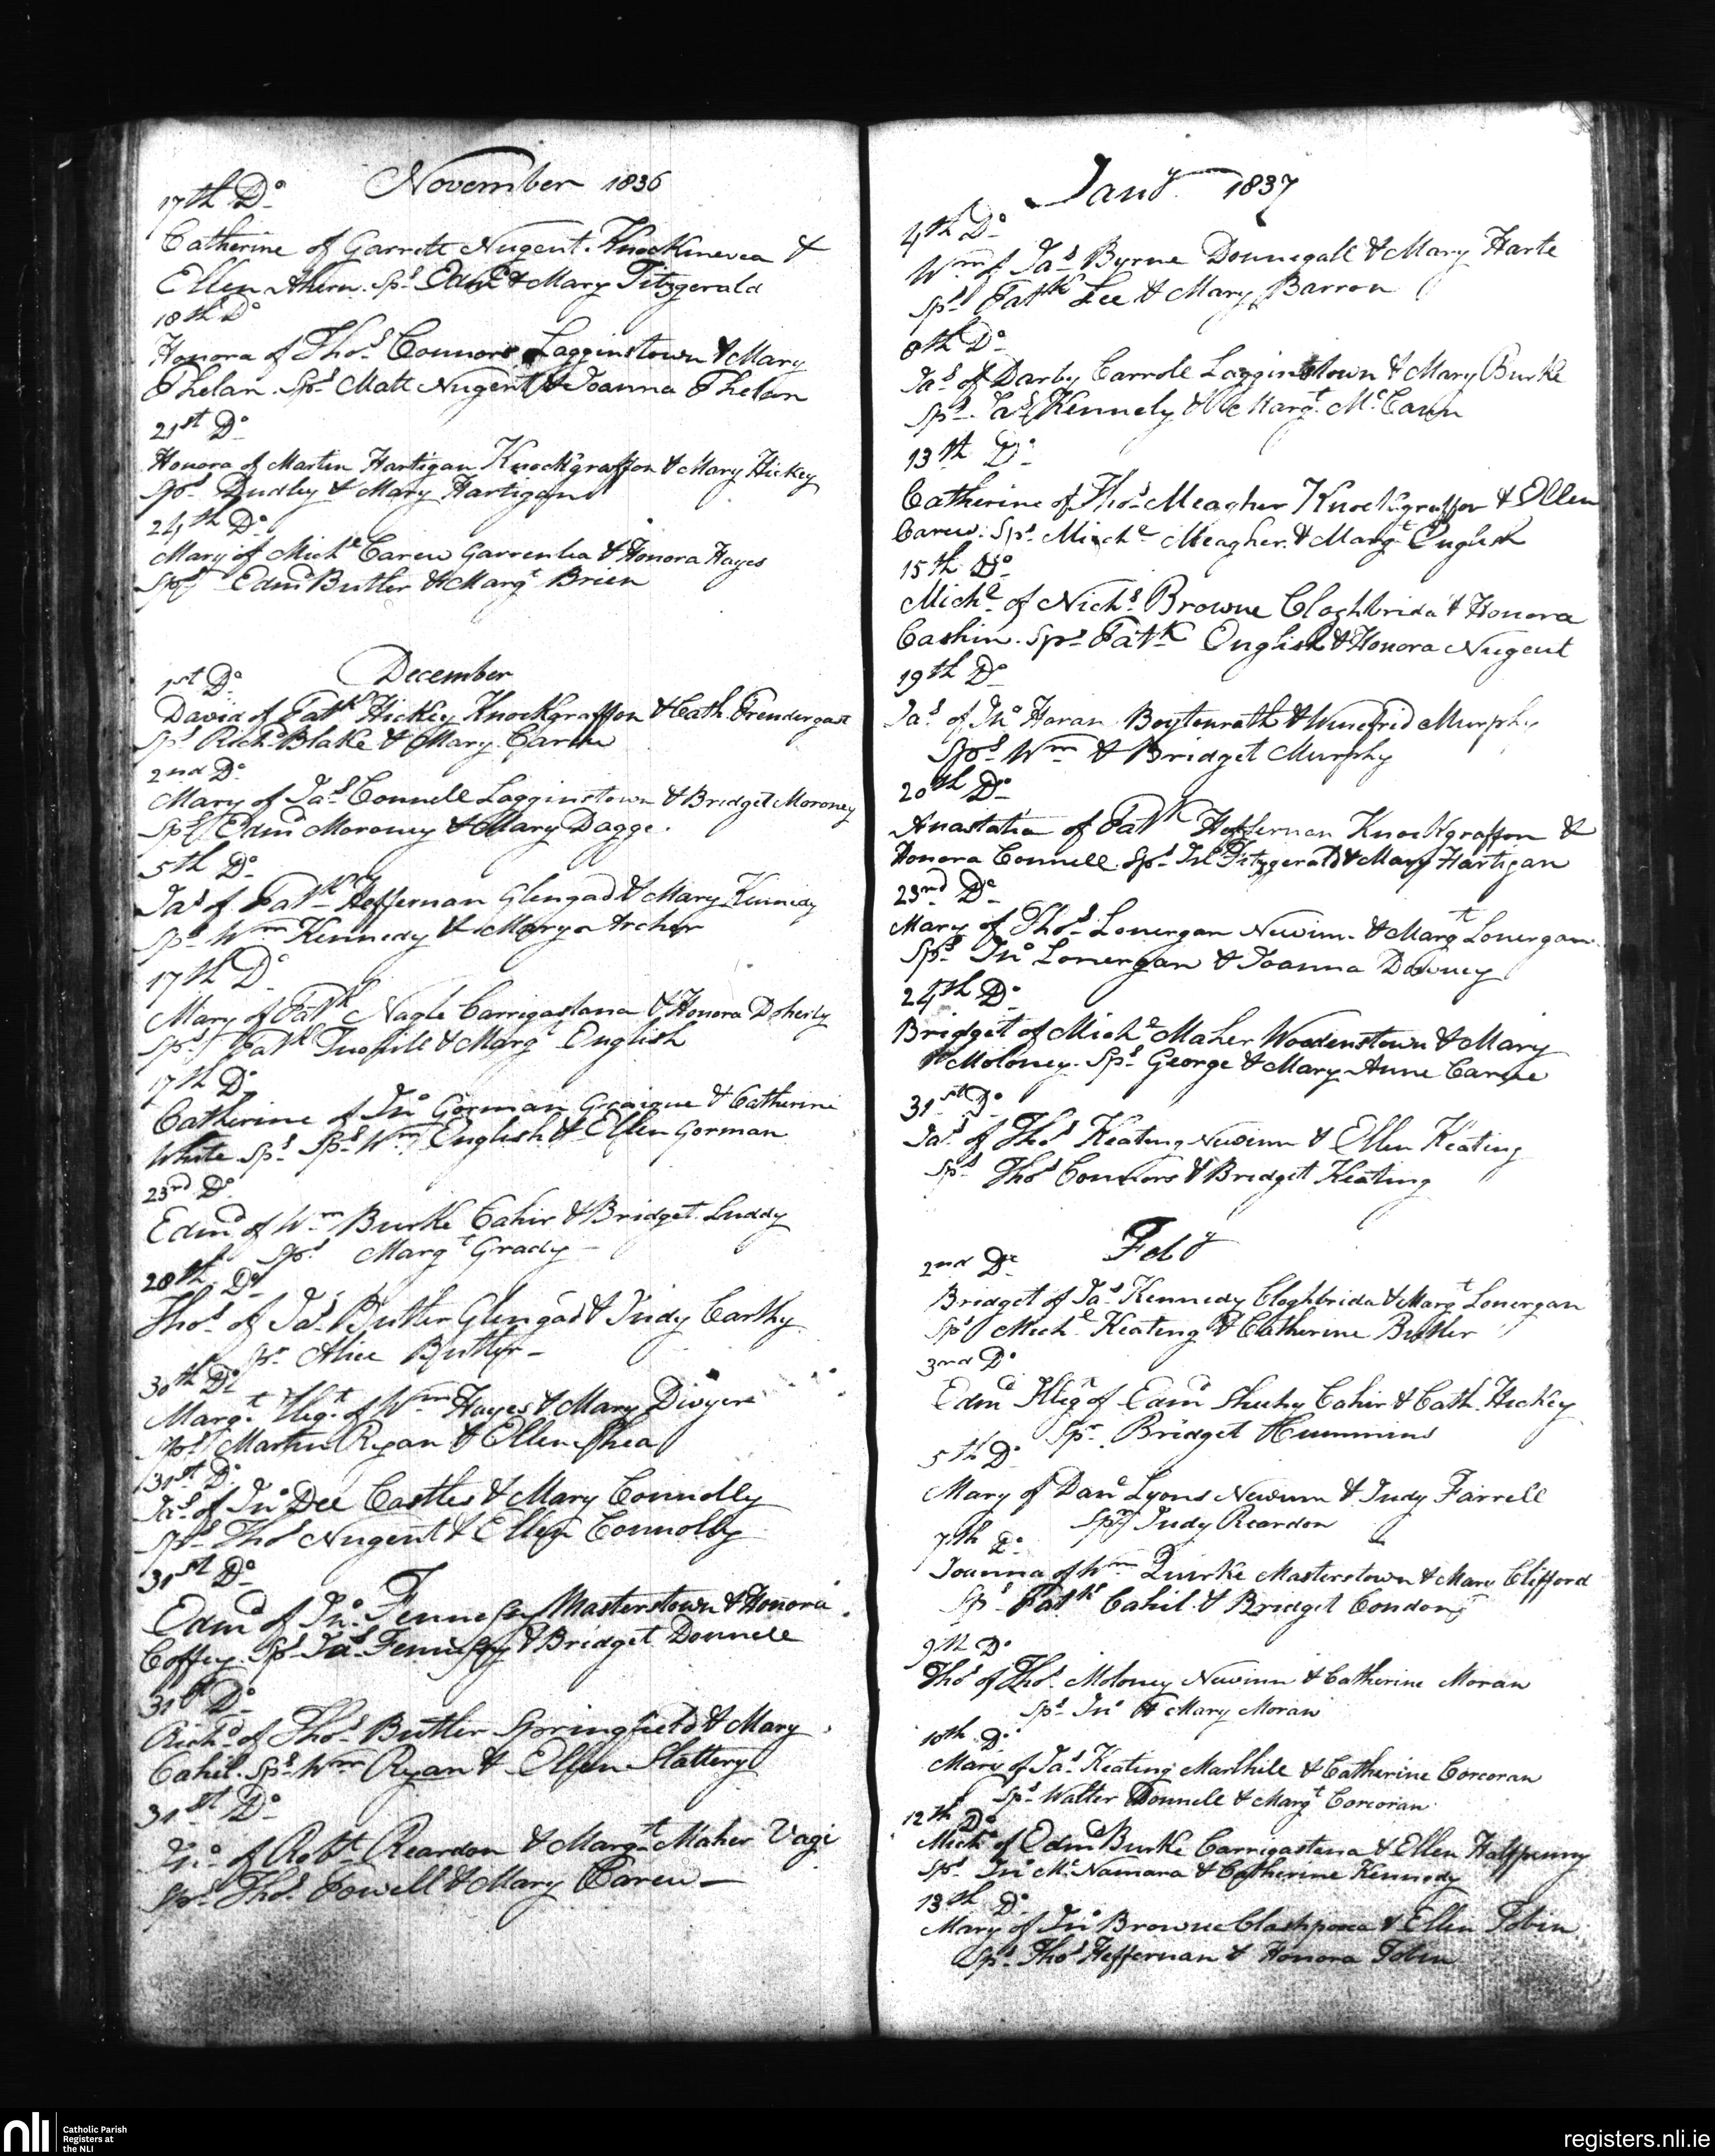 November 1836
17th Do
Catherine of Garrett Nugent. Knockinevea &
Ellen Ahern. Sps Edmd & Mary Fitzgerald
18th Do
Honora of Thos Connors Lagginstown & Mary
Phelan. Sps Matt Nugent & Joanna Phelan
21st Do
Honora of Martin Hartigan Knockgraffon & Mary Hickey
Sps Dudley & Mary Hartigan
24th Do
Mary of Michl Carew Garrenlea & Honora Hayes
Sps Edmd Butler & Margt Brien
December
1st Do
David of Patk Hickey Knockgraffon & Cath. Prendergast
Sps Richd Blake & Mary Carew
2nd Do
Mary of Jas Connell Lagginstown & Bridget Moroney
Sps Edmd Moroney & Mary Dagge.
5th Do
Jas of Patk Heffernan Glengad & Mary Kennedy
Sps Wm Kennedy & Mary Archer
17th Do
Mary of Patk Nagle Carrigastana & Honora Doherty
Sps Patk Tuohill & Margt English
17th Do
Catherine of Jno Gorman Graigue & Catherine
White Sps Sps Wm English & Ellen Gorman
23rd Do
Edmd of Wm Burke Cahir & Bridget Luddy
Sps Margt Grady
28th Do
Thos of Jas Butler Glengad & Judy Carthy
Sps Alice Butler
30th Do
Margt Illegt of Wm Hayes & Mary Dwyer
Sps Martin Ryan & Ellen Shea
31st Do
Jas of Jno Dee Castles & Mary Connolly
Sps Thos Nugent & Ellen Connolly
31st Do
Edmd of Jno Fennessy Masterstown & Honora
Coffey. Sps Jas Fennessy & Bridget Donnell
31st Do
Richd of Thos Butler Springfield & Mary
Cahil. Sps Wm Ryan & Ellen Slattery
31st Do
Jno of Robt Reardon & Margt Maher Vagi
Sps Thos Powell & Mary Carew
Jany 1837
4th Do
Wm of Jas Byrne Donnegall & Mary Harte
Sps Patk Lee & Mary Barron
8th Do
Jas of Darby Carroll Lagginstown & Mary Burke
Sps Jas Kennely & Margt McCann
13th Do
Catherine of Thos Meagher Knockgraffon & Ellen
Carew. Sps Michl Meagher & Margt English
15th Do
Michl of Nichs Browne Cloghbrida & Honora
Cashin. Sps Patk English & Honora Nugent
19th Do
Jas of Jno Horan Boytonrath & Winefrid Murphy
Sps Wm & Bridget Murphy
20th Do
Anastatia of Patk Heffernan Knockgraffon &
Honora Connell. Sps Jno Fitzgerald & Mary Hartigan
23rd Do
Mary of Thos Lonergan Newinn & Margt Lonergan
Sps Jno Lonergan & Joanna Downey
24th Do
Bridget of Michl Maher Woodenstown & Mary
Moloney. Sps George & Mary Anne Carew
31st Do
Jas of Thos Keating Newinn & Ellen Keating
Sps Thos Connors & Bridget Keating
Feby
2nd Do
Bridget of Jas Kennedy Cloghbrida & Margt Lonergan
Sps Michl Keating & Catherine Butler
3rd Do
Edmd Illeg of Edmd Sheehy Cahir & Cath. Hickey
Spr Bridget Hummins
5th Do
Mary of Danl Lyons Newinn & Judy Farrell
Spr Judy Reardon
7th Do
Joanna of Wm Quirke Masterstown & Mary Clifford
Sps Patk Cahil & Bridget Condon
9th Do
Thos of Thos Moloney Newinn & Catherine Moran
Sps Jno & Mary Moran
10th Do
Mary of Jas Keating Marlhill & Catherine Corcoran
Sps Walter Donnell & Margt Corcoran
12th Do
Michl of Edmd Burke Carrigastana & Ellen Halfpenny
Sps Jno McNamara & Catherine Kennedy
13th Do
Mary of Jno Browne Clashpoea & Ellen Tobin
Sps Thos Heffernan & Honora Tobin
nli
Catholic Parish
Registers at
the NLI
registers.nli.ie